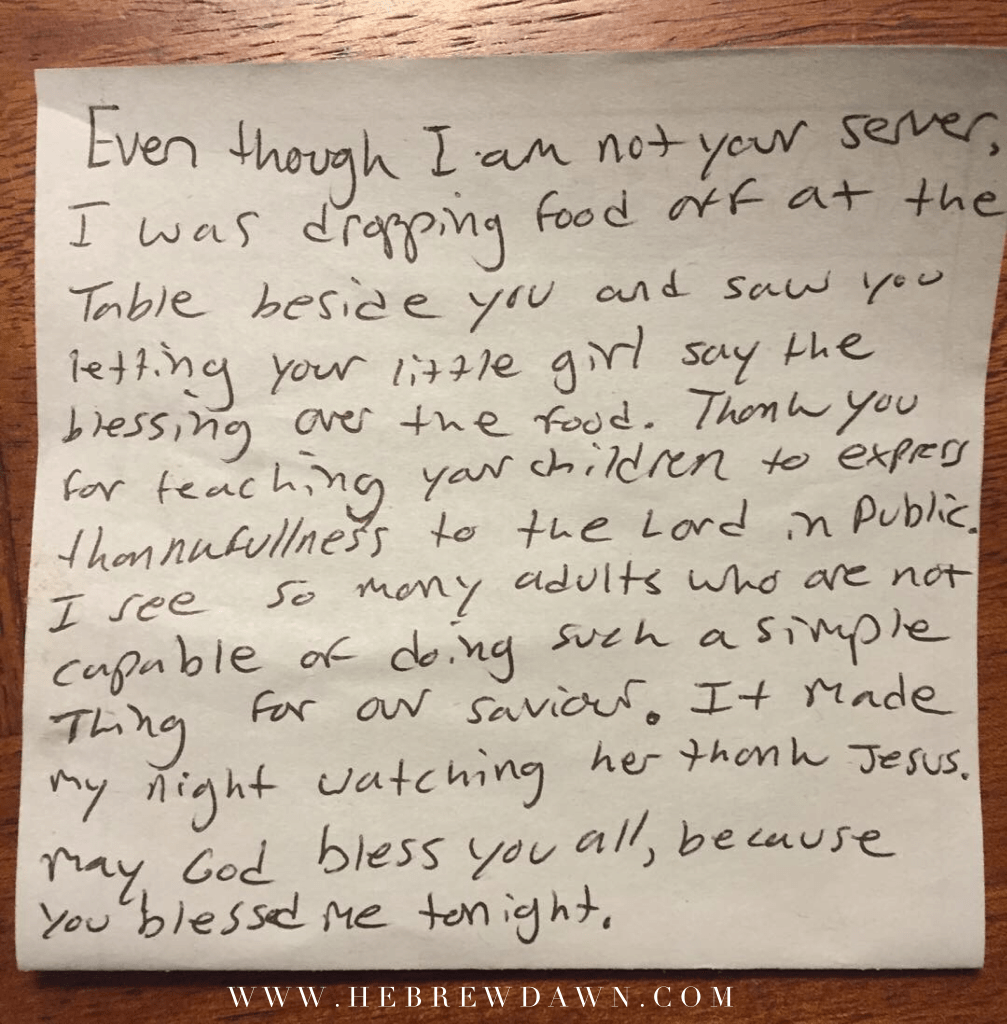 Even though I am not your server,
I was dropping food off at the
Table beside you and saw you
letting your little girl say the
blessing over the food. Thank you
for teaching your children to express
thannufullness to the Lord in Public.
I see so many adults who are not
capable of doing such a simple
Thing for our saviour. It made
my night watching her thank Jesus.
May God bless you all, because
you blessed me tonight.
WWW.HEBREWDAWN.COM